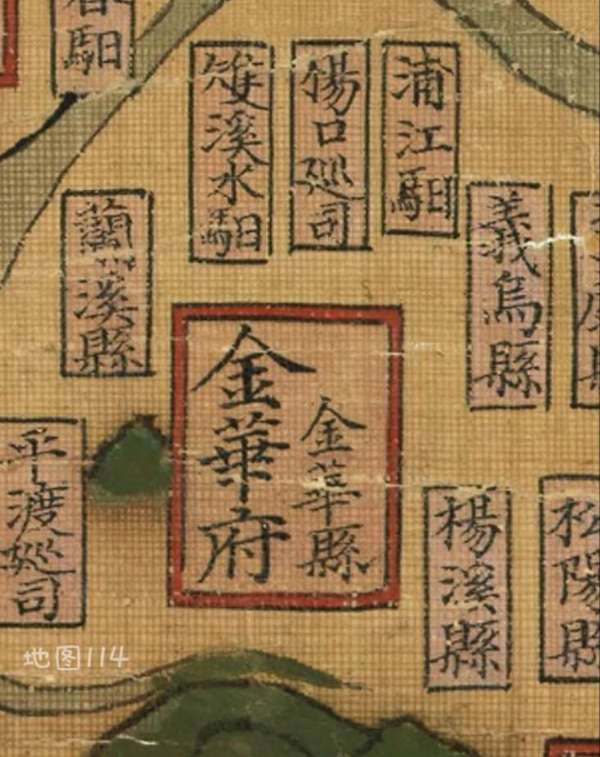 浦江馹
傷口巡司
雙溪水馹
馹
義烏縣
蘭溪縣
金華府
金華縣
平渡巡司
楊溪縣
松陽縣
縣
地图114